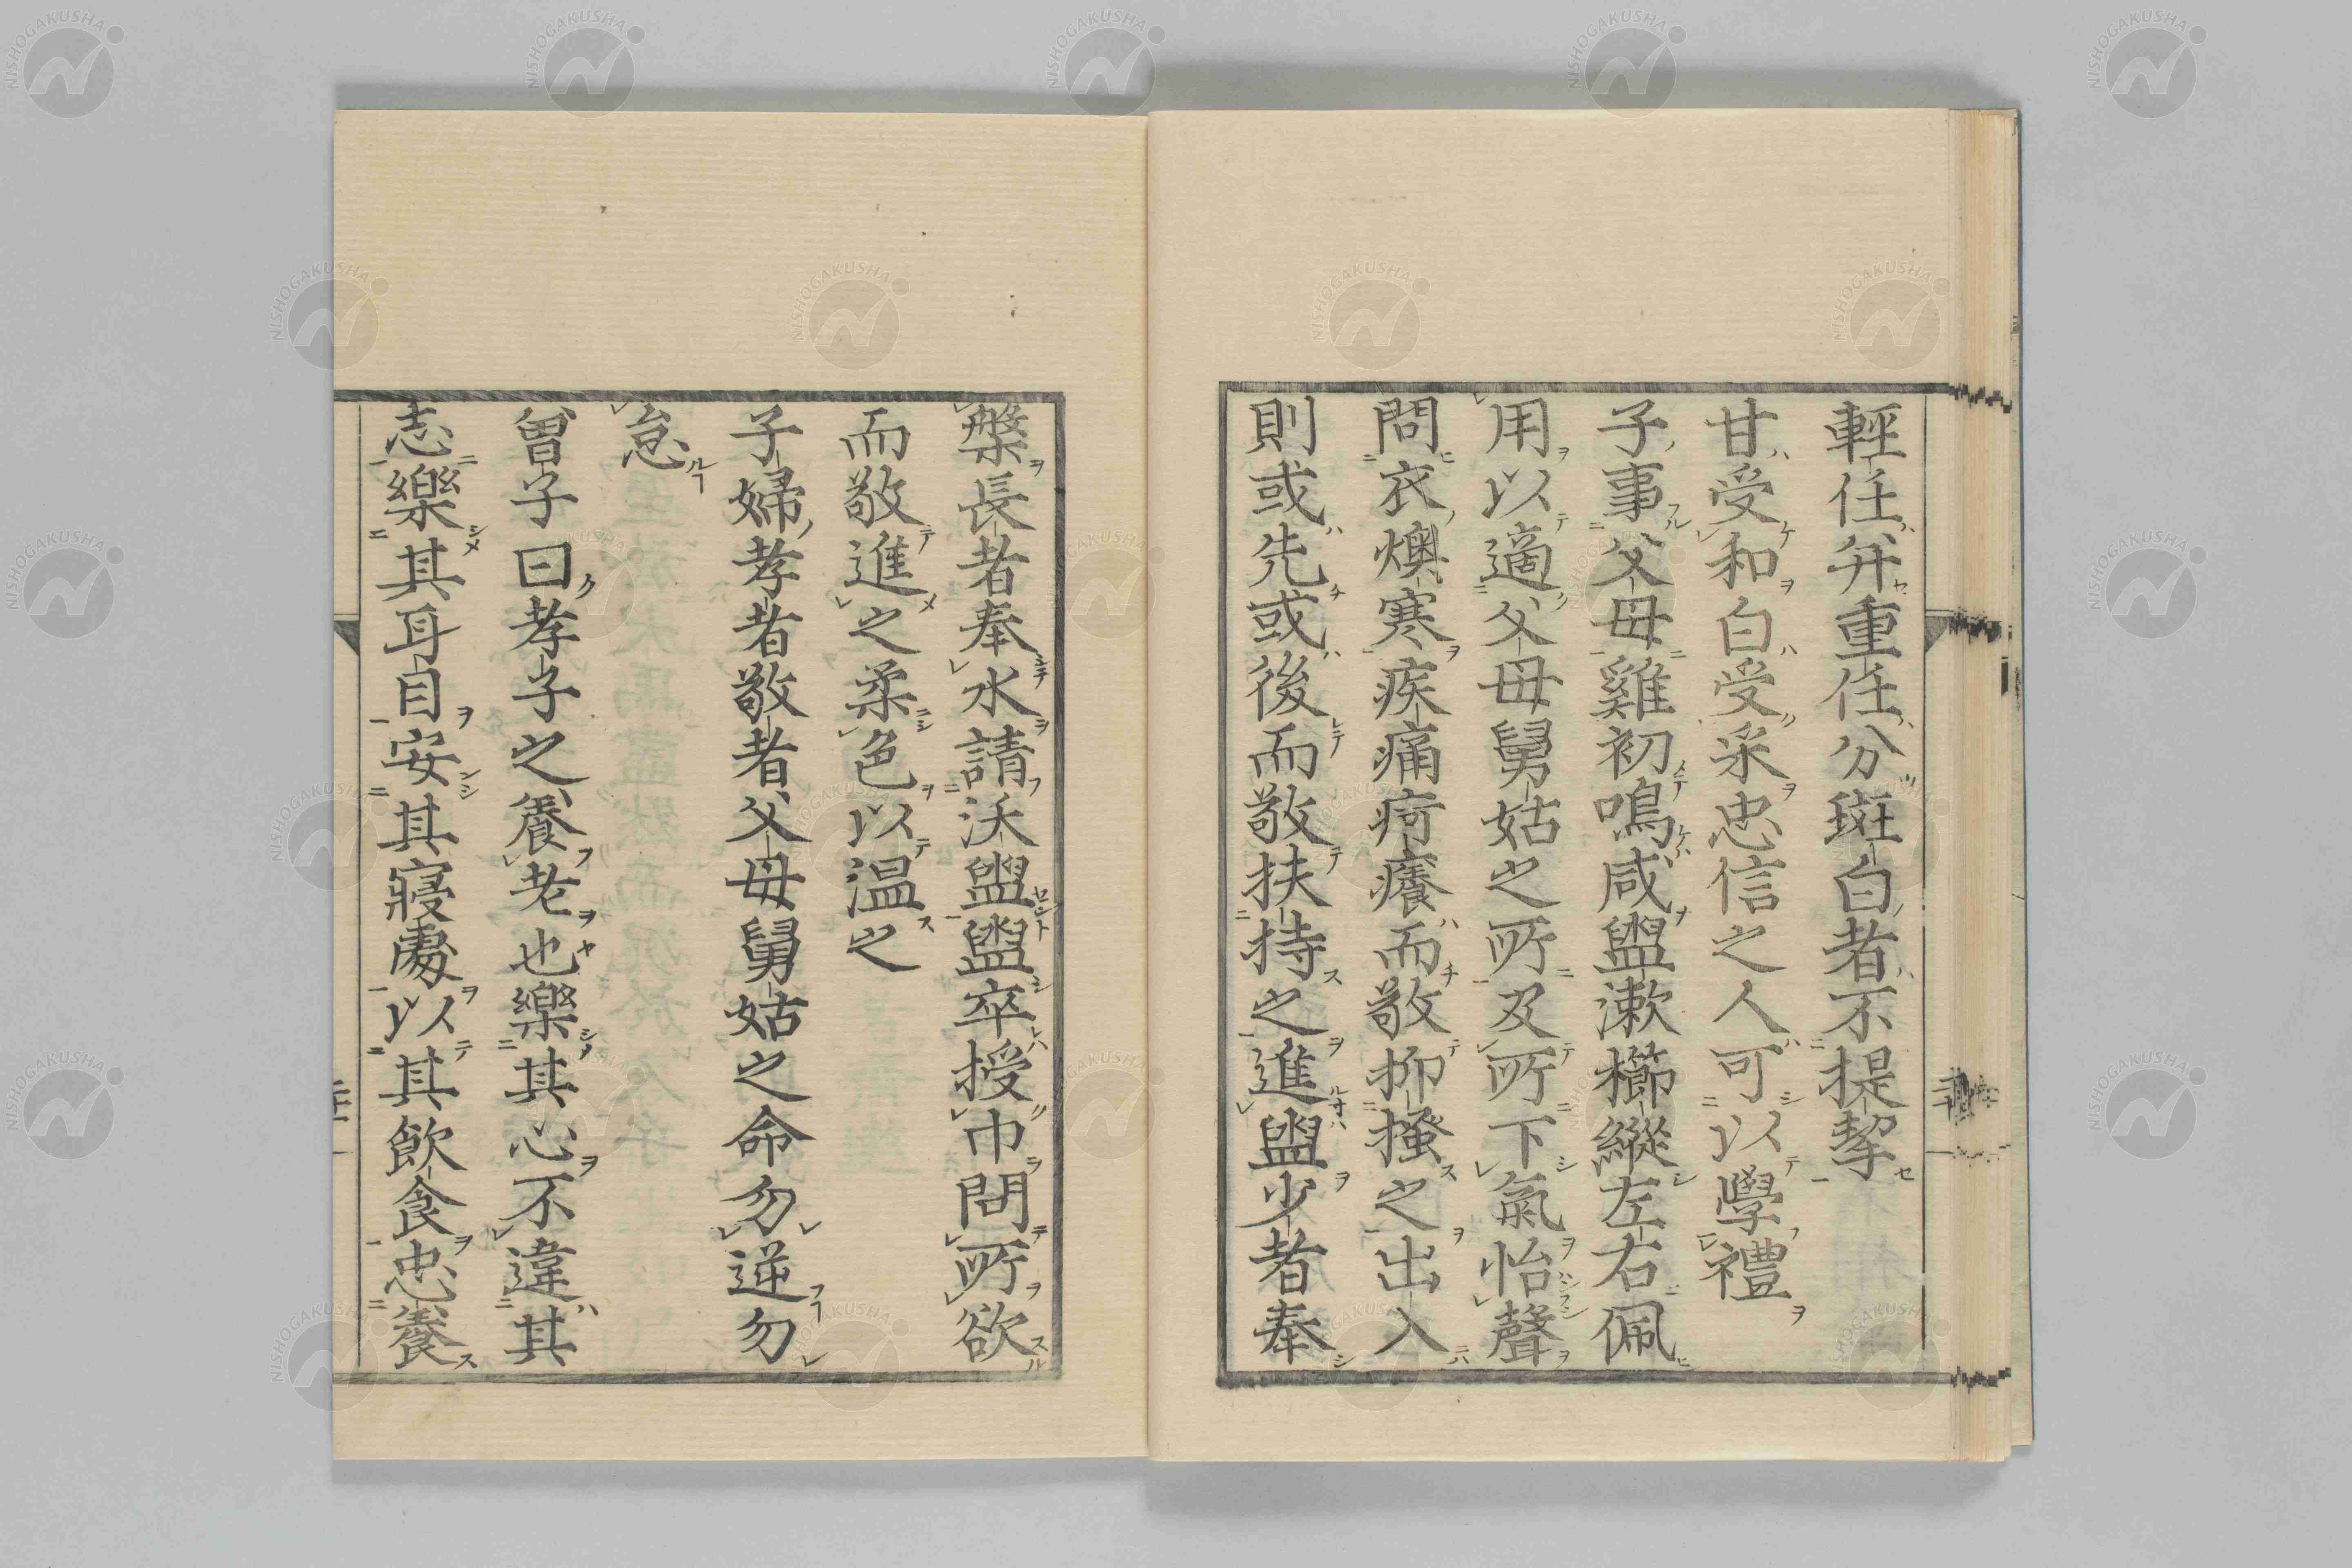 輕任并重任分斑白者不提挈
甘受和白受采忠信之人可以學禮
子事父母雞初鳴咸盥漱櫛縰左右佩
用以適父母舅姑之所及所下氣怡聲
問衣燠寒疾痛疴癢而敬抑搔之出入
則或先或後而敬扶持之進盥少者奉
槃長者奉水請沃盥盥卒授巾問所欲
而敬進之柔色以温之
子婦孝者敬者父母舅姑之命勿逆勿
怠
曾子曰孝子之養老也樂其心不違其
志樂其耳目安其寢處以其飲食忠養
NISHOGAKUSHA